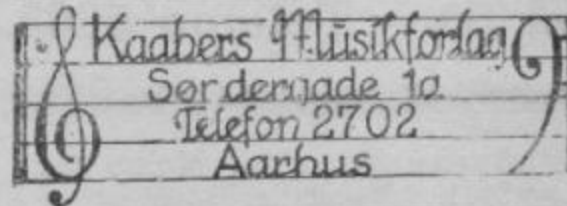 Kaabers Musikforlag
Søndergade 1o
Telefon 2702
Aarhus